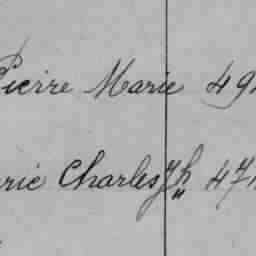 Pierre Marie 49
rie Charles Jh 47